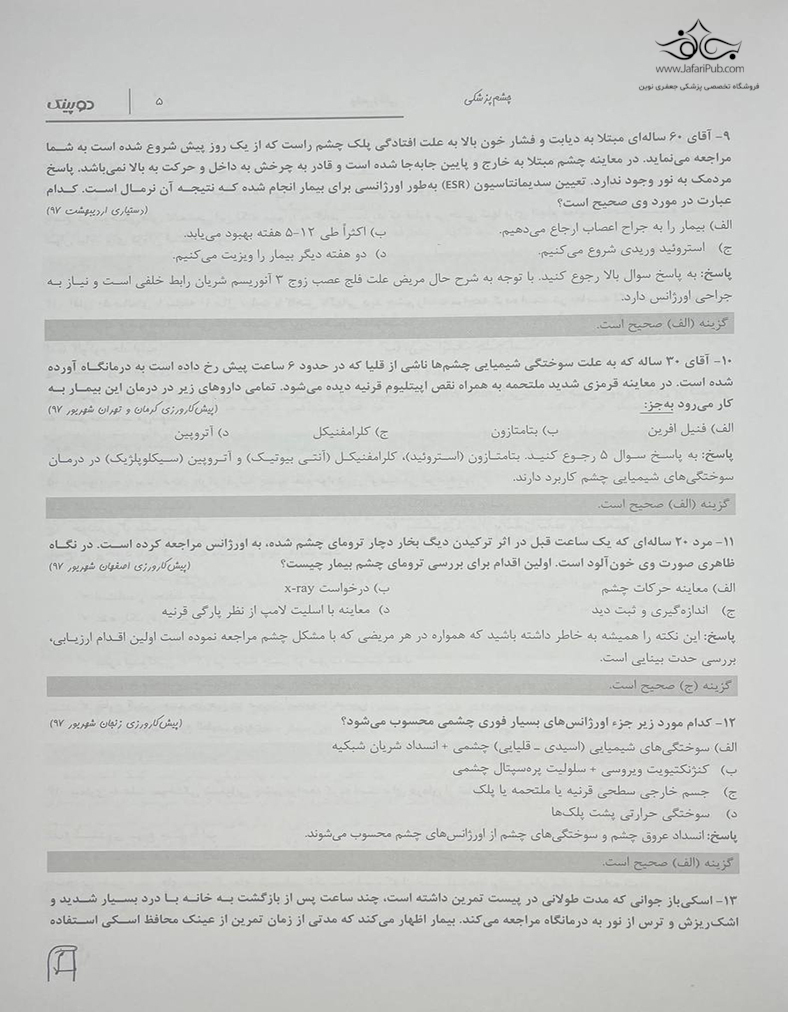 جعفری
www.JafariPub.com
فروشگاه تخصصی پزشکی جعفری نوین
چشم‌پزشکی
۵
دوپینگ
۹- آقای ۶۰ ساله‌ای مبتلا به دیابت و فشار خون بالا به علت افتادگی پلک چشم راست که از یک روز پیش شروع شده است به شما
مراجعه می‌نماید. در معاینه چشم مبتلا به خارج و پایین جابه‌جا شده است و قادر به چرخش به داخل و حرکت به بالا نمی‌باشد. پاسخ
مردمک به نور وجود ندارد. تعیین سدیمانتاسیون (ESR) به‌طور اورژانسی برای بیمار انجام شده که نتیجه آن نرمال است. کدام
عبارت در مورد وی صحیح است؟ (دستیاری اردیبهشت ۹۷)
الف) بیمار را به جراح اعصاب ارجاع می‌دهیم. ب) اکثراً طی ۱۲-۵ هفته بهبود می‌یابد.
ج) استروئید وریدی شروع می‌کنیم. د) دو هفته دیگر بیمار را ویزیت می‌کنیم.
پاسخ: به پاسخ سوال بالا رجوع کنید. با توجه به شرح حال مریض علت فلج عصب زوج ۳ آنوریسم شریان رابط خلفی است و نیاز به
جراحی اورژانس دارد.
گزینه (الف) صحیح است.
۱۰- آقای ۳۰ ساله که به علت سوختگی شیمیایی چشم‌ها ناشی از قلیا که در حدود ۶ ساعت پیش رخ داده است به درمانگاه آورده
شده است. در معاینه قرمزی شدید ملتحمه به همراه نقص اپیتلیوم قرنیه دیده می‌شود. تمامی داروهای زیر در درمان این بیمار به
کار می‌رود به‌جز: (پیش‌کارورزی کرمان و تهران شهریور ۹۷)
الف) فنیل افرین ب) بتامتازون ج) کلرامفنیکل د) آتروپین
پاسخ: به پاسخ سوال ۵ رجوع کنید. بتامتازون (استروئید)، کلرامفنیکل (آنتی بیوتیک) و آتروپین (سیکلوپلژیک) در درمان
سوختگی‌های شیمیایی چشم کاربرد دارند.
گزینه (الف) صحیح است.
۱۱- مرد ۲۰ ساله‌ای که یک ساعت قبل در اثر ترکیدن دیگ بخار دچار ترومای چشم شده، به اورژانس مراجعه کرده است. در نگاه
ظاهری صورت وی خون‌آلود است. اولین اقدام برای بررسی ترومای چشم بیمار چیست؟ (پیش‌کارورزی اصفهان شهریور ۹۷)
الف) معاینه حرکات چشم ب) درخواست x-ray
ج) اندازه‌گیری و ثبت دید د) معاینه با اسلیت لامپ از نظر پارگی قرنیه
پاسخ: این نکته را همیشه به خاطر داشته باشید که همواره در هر مریضی که با مشکل چشم مراجعه نموده است اولین اقدام ارزیابی،
بررسی حدت بینایی است.
گزینه (ج) صحیح است.
۱۲- کدام مورد زیر جزء اورژانس‌های بسیار فوری چشمی محسوب می‌شود؟ (پیش‌کارورزی زنجان شهریور ۹۷)
الف) سوختگی‌های شیمیایی (اسیدی ـ قلیایی) چشمی + انسداد شریان شبکیه
ب) کنژنکتیویت ویروسی + سلولیت پره‌سپتال چشمی
ج) جسم خارجی سطحی قرنیه یا ملتحمه یا پلک
د) سوختگی حرارتی پشت پلک‌ها
پاسخ: انسداد عروق چشم و سوختگی‌های چشم از اورژانس‌های چشم محسوب می‌شوند.
گزینه (الف) صحیح است.
۱۳- اسکی‌باز جوانی که مدت طولانی در پیست تمرین داشته است، چند ساعت پس از بازگشت به خانه با درد بسیار شدید و
اشک‌ریزش و ترس از نور به درمانگاه مراجعه می‌کند. بیمار اظهار می‌کند که مدتی از زمان تمرین از عینک محافظ اسکی استفاده